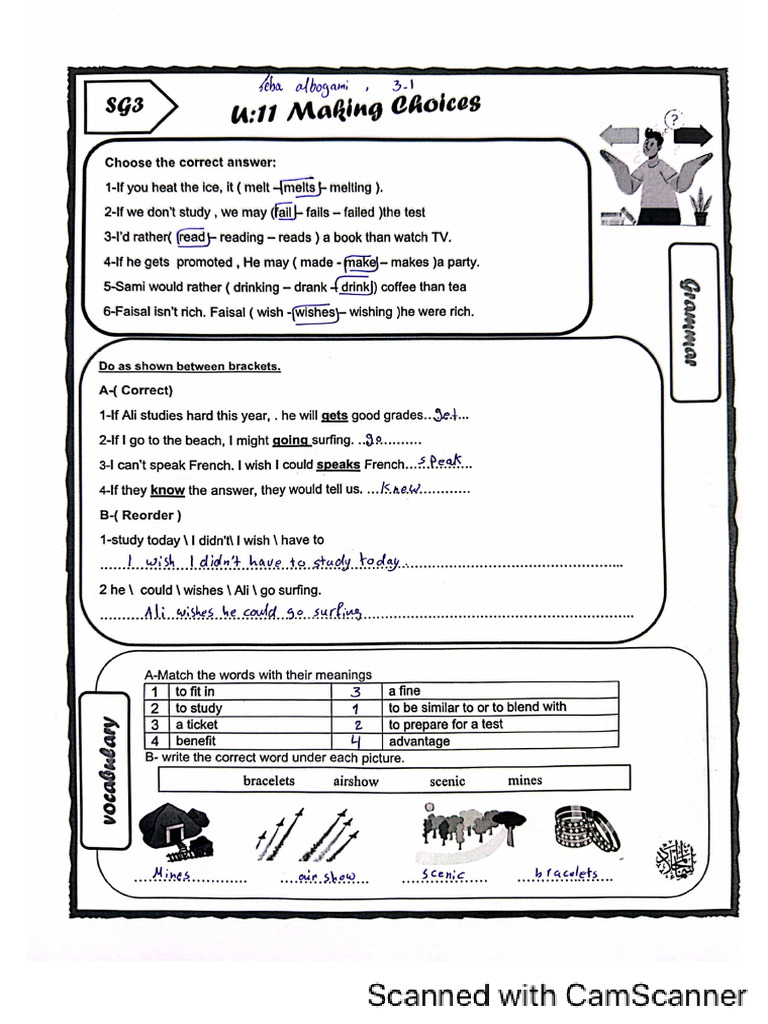 Seba albogami , 3-1
SG3
U:11 Making Choices
?
Choose the correct answer:
1-If you heat the ice, it ( melt – melts – melting ).
2-If we don't study , we may (fail – fails – failed )the test
3-I'd rather( read – reading – reads ) a book than watch TV.
4-If he gets promoted , He may ( made - make – makes )a party.
5-Sami would rather ( drinking – drank – drink) coffee than tea
6-Faisal isn't rich. Faisal ( wish - wishes – wishing )he were rich.
Grammar
Do as shown between brackets.
A-( Correct)
1-If Ali studies hard this year, . he will gets good grades..get...
2-If I go to the beach, I might going surfing. ..go..........
3-I can't speak French. I wish I could speaks French...speak...
4-If they know the answer, they would tell us. ...Knew............
B-( Reorder )
1-study today \ I didn't\ I wish \ have to
I wish I didn't have to study today.
2 he \ could \ wishes \ Ali \ go surfing.
Ali wishes he could go surfing
vocabulary
A-Match the words with their meanings
1 to fit in 3 a fine
2 to study 1 to be similar to or to blend with
3 a ticket 2 to prepare for a test
4 benefit 4 advantage
B- write the correct word under each picture.
bracelets airshow scenic mines
Mines air show scenic bracelets
Scanned with CamScanner